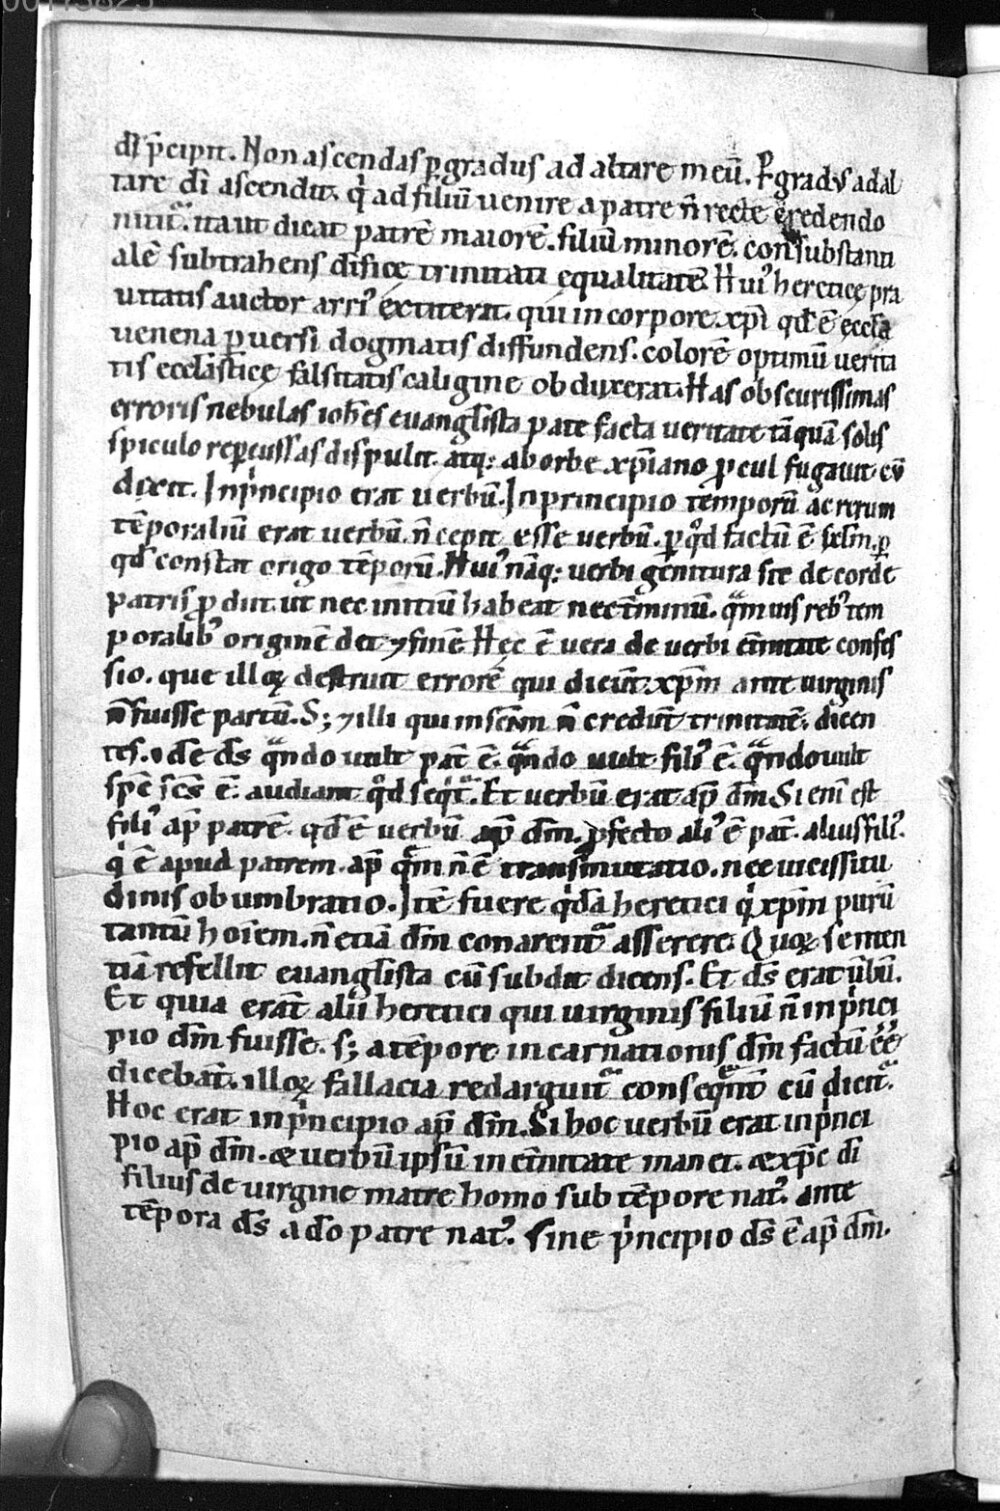 dī p̄cipit. Non ascendas ꝑ gradus ad altare meū. Ꝑ gradus ad al
tare dī ascendit. qͥ ad filiū uenire a patre n̄ recte credendo
nitit᷑. ita ut dicat patrē maiorē. filiū minorē. consubstanti
alē subtrahens dīficę trinitati equalitatē. Huiꝰ heretice pra
uitatis auctor arriꝰ extiterat. qui in corpore xp̄i qd̄ ē ęccl̄a
uenena ꝑuersi dogmatis diffundens. colorē optimū uerita
tis eccl̄astice falsitatis caligine obduxerat. Has obscurissimas
erroris nebulas ioh̄es euangl̄ista patefacta ueritate tāquā solis
spiculo reꝑcussas dispulit. atq; ab orbe xp̄iano ꝓcul fugauit. cū
dixit. In pͥncipio erat uerbū. In principio temporū ac rerum
tēporaliū erat uerbū. n̄ cepit esse uerbū. ꝑ qͦd factū ē
qd̄ constat origo tēporū. Huiꝰ nāq; uerbi gēnitura sic de corde
patris ꝓdiit. ut nec initiū habeat nec t̄minū. qᷓmuis rebꝰ tem
poralibꝰ originē det ⁊ finē. Hęc ē uera de uerbi et̄nitate confes
sio. que illoꝝ destruit errorē qui dicūt xp̄m ante uirginis
n̄ fuisse partū. S; ⁊ illi qui in sc̄am n̄ credūt trinitatē. dicen
tes. id̄e ds̄ qᷓndo uult pat̄ ē. qᷓndo uult filiꝰ ē. qᷓndo uult
sp̄c sc̄s ē. audiant qͦd seqͥt᷑. Et uerbū erat ap̄ dm̄. Si enī est
filiꝰ ap̄ patrē. qd̄ ē uerbū ap̄ dm̄. ꝓfecto aliꝰ ē pat̄. alius filiꝰ.
qͥ ē apud patrem. ap̄ qm̄ n̄ ē transmutatio. nec uicissitu
dinis obumbratio. Itē fuere qͥdā heretici qͥ xp̄m purū
tantū hoīem. n̄ etiā dm̄ conarent᷑ asserere. Quoꝝ senten
tiā refellit euangl̄ista cū subdit dicens. Et ds̄ erat ūbū.
Et quia erāt alii heretici qui uirginis filiū n̄ in pͥnci
pio dm̄ fuisse. s; a tēpore incarnationis dm̄ factū ēē
dicebāt. illoꝝ fallacia redarguit᷑ conseqͣnt̄ cū dicit᷑.
Hoc erat in pͥncipio ap̄ dm̄. Si hoc uerbū erat in pͥnci
pio ap̄ dm̄. æ uerbū ipsū in et̄nitate manet. æ xp̄c dī
filius de uirgine matre homo sub tēpore natꝰ. ante
tēpora ds̄ a do patre natꝰ. sine pͥncipio ds̄ ē ap̄ dm̄.